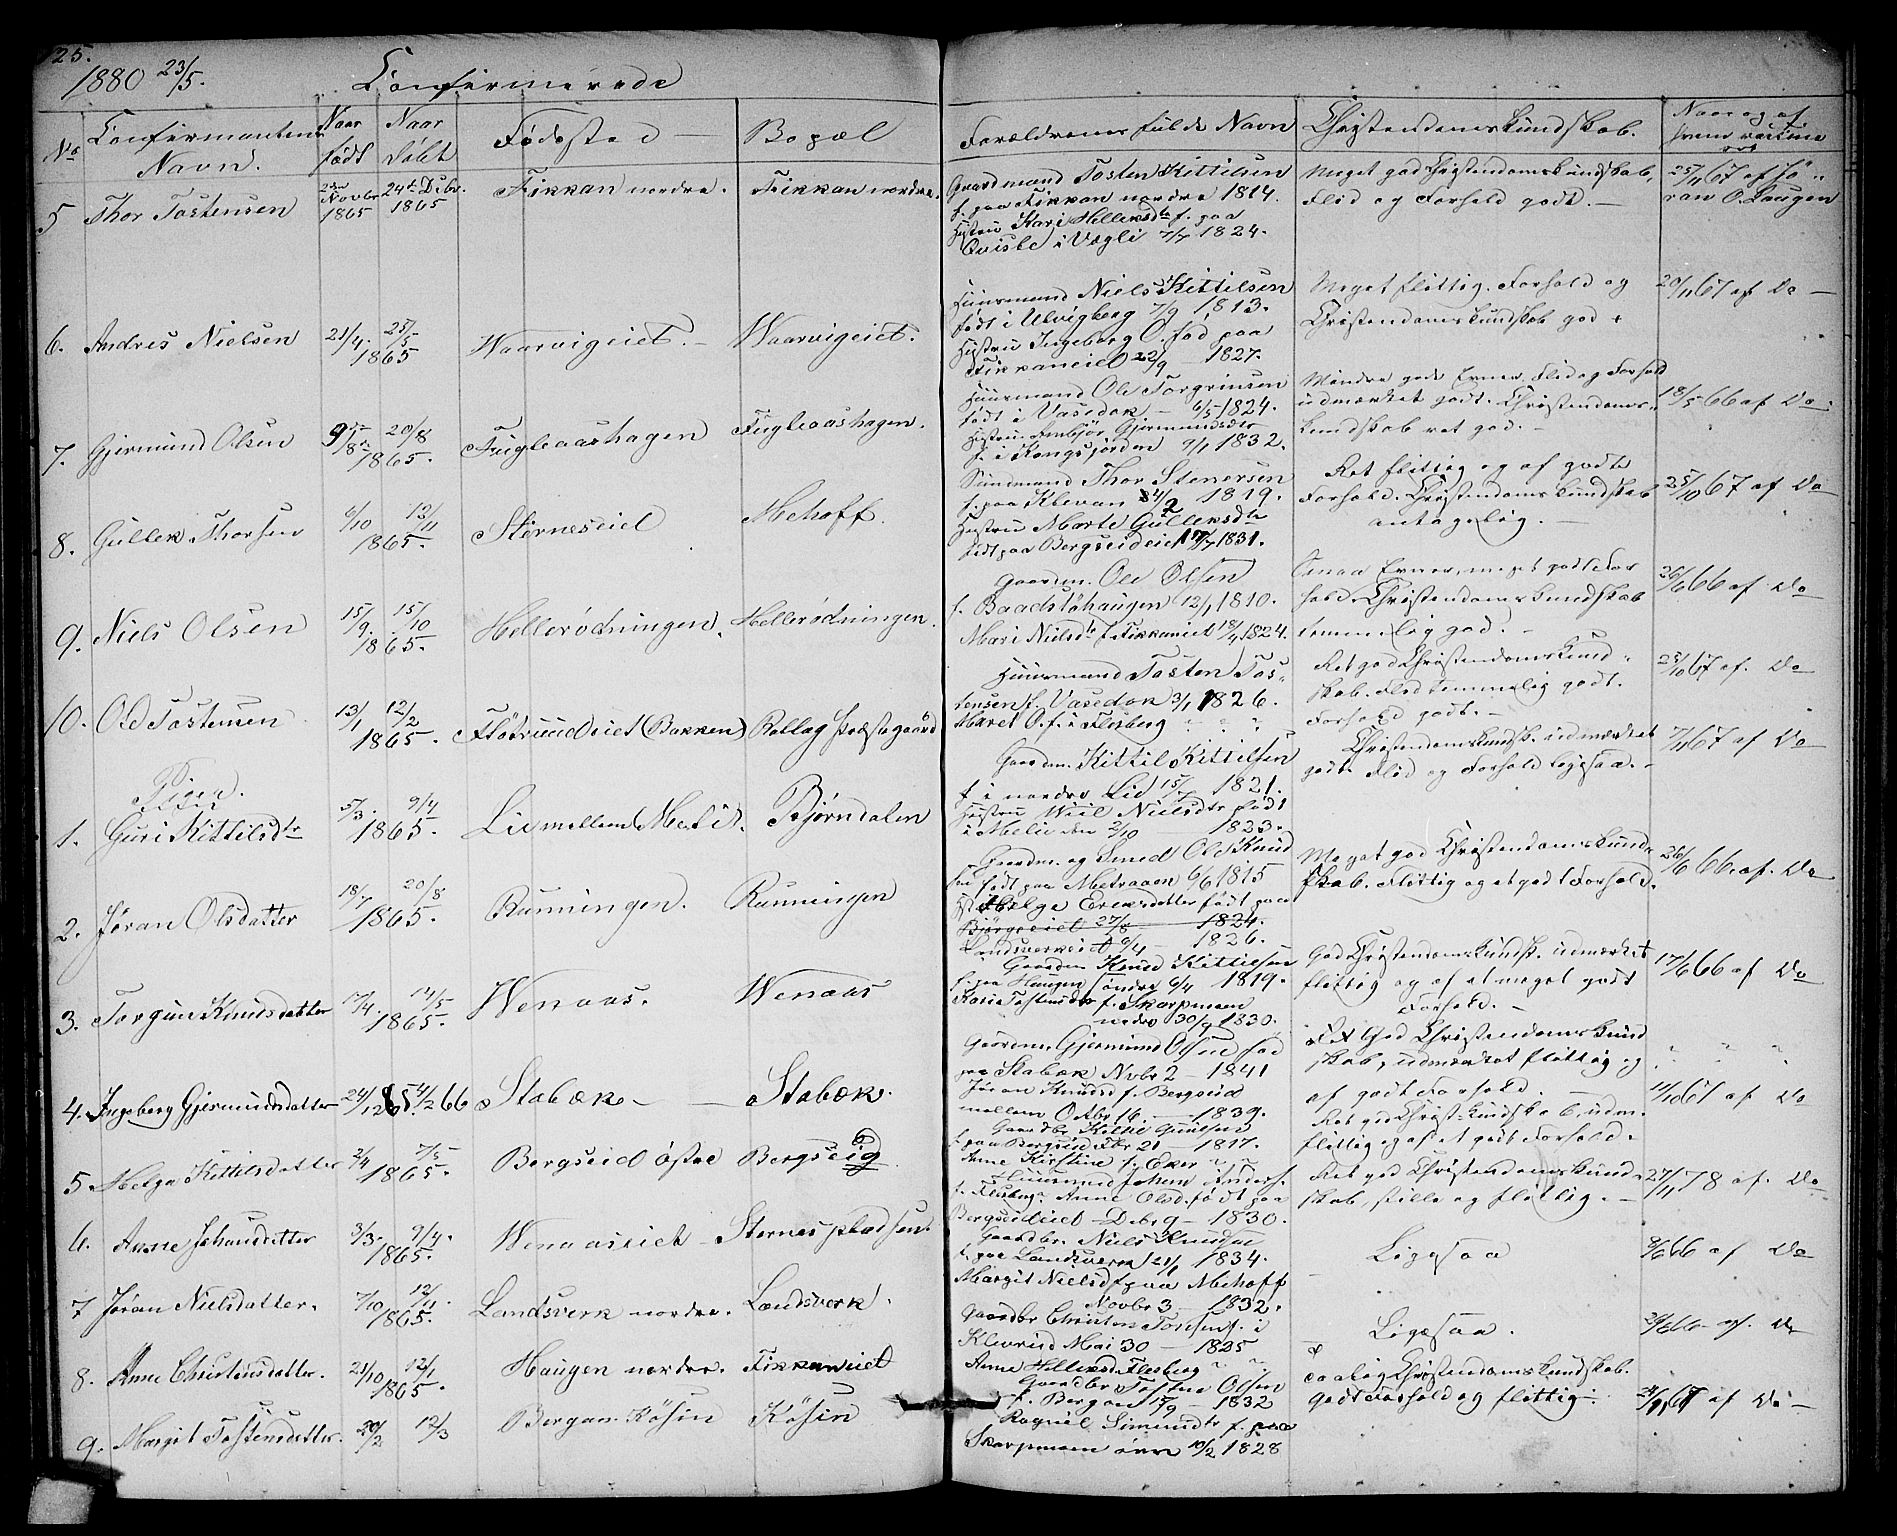 125.
1880 23/5. Confirmerede
No
Confirmantens Navn.
Naar født
Naar Døbt
Fødested
Bopæl
Forældrenes fulde Navn
Christendomskundskab.
Naar og af hvem vaccine
5 Thor Tostensen
2den Novbr 1865
24de Decbr. 1865
Fikkan nordre.
Fikkan nordre.
Gaardmand Tosten Kittilsen
f. paa Fikkan nordre 1814.
Hustru Kari Helleksdtr f. paa
Qvisle i Vægli 7/7 1824.
Meget god Christendomskundskab,
Flid og Forhold godt.
25/11 67 af Jø-
ran O. Laugen
6. Andres Nielsen
21/4. 25/5 1865
Waarvigeiet.
Waarvigeiet.
Huusmand Niels Kittilsen
født i Ulvigberg 7/9 1813.
Hustru Ingeborg O. fød paa
Fikkaneiet 22/9 1827.
Meget flittig. Forhold og
Christendomskundskab god
20/11 67 af Do
7. Gjermund Olsen
20/8 1865.
Fugleaashagen
Fugleaashagen.
Huusmand Ole Torgrimsen
født i Vasedok 6/5 1824.
Hustru Ambjør Gjermundsdtr
f. i Kongsjorden 9/1 1832.
Mindre gode Evner. Flid og Forhold
udmærket godt. Christendoms-
kundskab ret god.
18/5 66 af Do
8. Gullek Thorsen
6/10 12/11 1865.
Sterneseiet
Mehoff.
Huusmand Thor Stenersen
f. paa Klevan 24/2 1819.
Hustru Marte Gulleksdtr
født paa Bergseideiet 1831.
Ret flittig og af godt
Forhold. Christendomskundskab
antagelig.
25/10 67 af Do
9. Niels Olsen
15/9. 15/10 1865.
Hellerødningen.
Hellerødningen.
Gaardm. Ole Olsen
f. Baadstøhaugen 12/1 1810.
Mari Nielsdtr f. Fikkaneiet 18/4 1824.
Smaa Evner, meget godt For
hold. Christendomskundskab
temmelig god.
26/6 66 af Do
10. Ole Tostensen
13/1 12/2 1865.
Fløtrudeiet (Bakken)
Rollag Præstegaard
Huusmand Tosten Tos-
tensen f. Vasedok 3/1 1826.
Maret O. f. i Flesberg
Ret god Christendomskund-
skab. Flid temmelig godt.
Forhold godt.
25/10 67 af. Do
Piger.
1. Guri Kittilsdtr
5/3. 9/4 1865.
Lie mellem (Mælie).
Bjørndalen
Gaardm. Kittil Kittilsen
f. i nordre Lid 15/7 1821.
Hustru Niielsdtr født
i Melie den 2/10 1823.
Christendomskundsk. udmærket
godt. Flid og Forhold ligesaa.
7/11 67 af Do
2. Jøran Olsdatter
18/7 20/8 1865.
Runningen.
Runningen
Gaardm. og Smed Ole Knud
sen født paa Mætraaen 6/6 1815
Helge Eriksdatter født paa
Bjørgeeiet 27/8 1824.
Landsverkeiet 6/4 1826.
Meget god Christendomskund-
skab. Flittig og et godt Forhold.
26/6 66. af. Do
3. Torgun Knudsdatter
17/4. 14/5 1865.
Wenaas.
Wenaas
Gaardm Knud Kittilsen
f. paa Haugen søndre 6/4 1819.
Karie Tostensdtr f. Skarpmoen
nedre 30/9 1830.
God Christendomskundsk. udmærket
flittig og af et meget godt
Forhold.
17/6 66 af Do
4. Ingeborg Gjermundsdatter
24/12 65. 4/2 66
Stabæk
Stabæk.
Gaardm. Gjermund Olsen fød
paa Stabæk Novbr 2 1841
Jøran Knudsd f. Bergseid
mellem Octbr 16. 1839.
Ret God Christendomskund
skab, udmærket flittig og
af godt Forhold.
" " "
5. Helga Kittilsdatter
2/4 7/5 1865.
Bergseid østre
Bergseid
Gaardbr Kittil Gunulsen
f. paa Bergseid Febr 21 1817.
Anne Kirstine f. Eker " "
Ret god Christ. kundskab, udm.
flittig og af et godt Forhold.
11/10 67 af Do
6. Anne Johansdatter
3/3. 9/4. 1865.
Wenaaseiet
Sternes pladsen.
Huusmand Johan Anders.
f. Flesberg. Anne Olsd. født paa
Bergseideiet Debr 9 1830.
Ret god Christendomskund-
skab, stille og flittig.
27/11 78 af. Do
7 Jøran Nielsdatter.
7/10 12/11. 1865.
Landsverk nordre.
Landsverk.
Gaardbr. Niels Knudsen
f. paa Landsverk 21/1 1834.
Margit Nielsd f paa Mehoff
Novbr 3. 1832.
Ligesaa
8/6 66 af Do
8. Anne Christensdatter.
21/10 12/11 1865.
Haugen nordre.
Fikkaneiet
Gaardbr Christen Torsens f. i
Klevrud Mai 30 1825
Anne Helleksd. Flesberg " "
Ligesaa.
26/6 66 af. Do
9. Margit Tostensdatter.
20/2 12/3
Bergan Køsin
Køsin
Gaardbr Tosten Olsen
f. Bergan 15/9 1832
Ragnil Simundtr f. paa
Skarpmoen øvre 10/2 1828
Daalig Christendomskundskab.
godt Forhold og flittig.
67 af Do